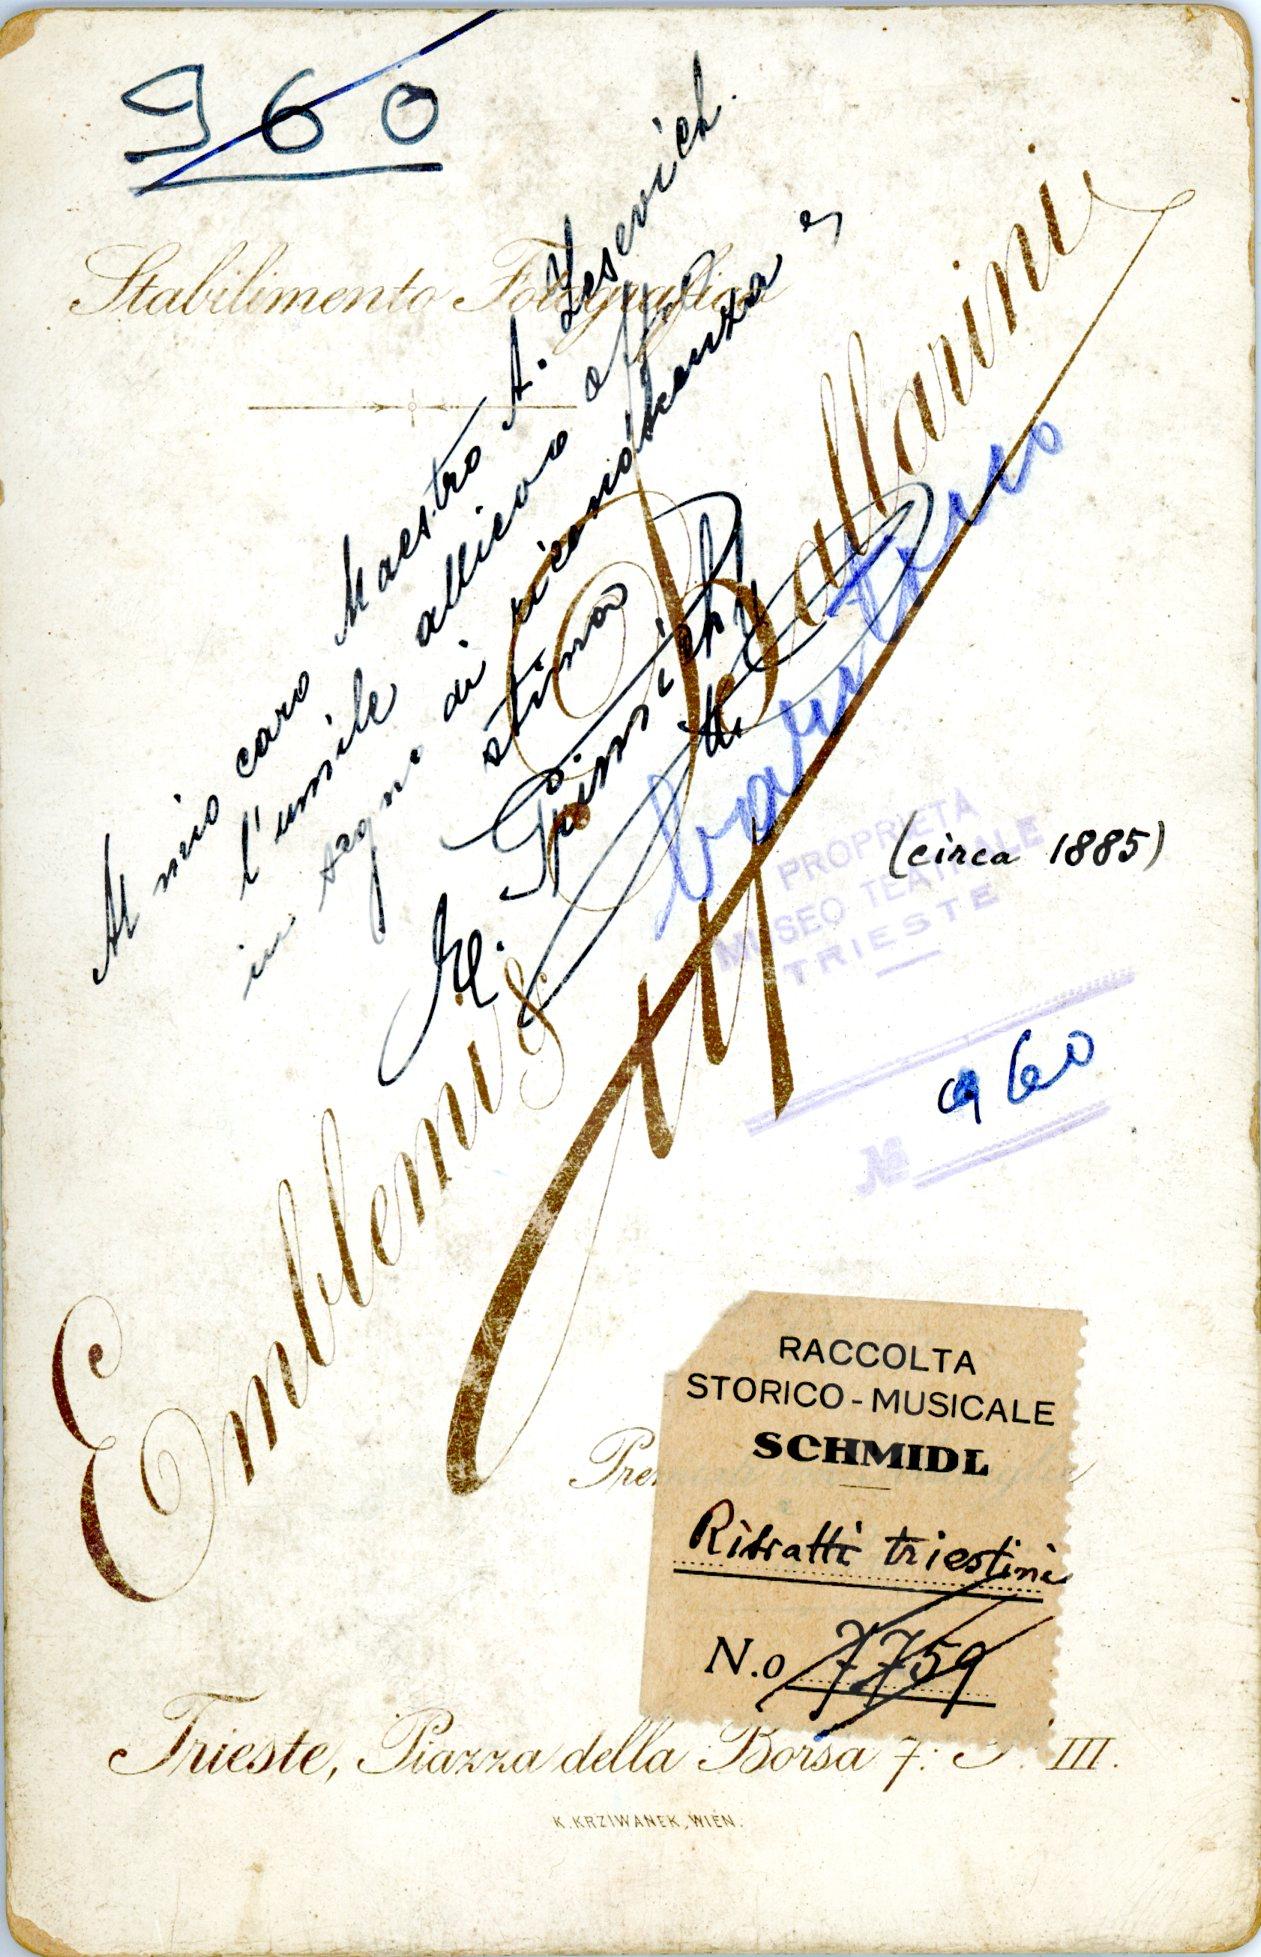 960
Stabilimento Fotografico
Al mio caro Maestro A. Zescevich.
l'umile allievo offre
in segno di riconoscenza e
stima
M. Spinsich
baritono
Emblemi & Ballarini
PROPRIETÀ
MUSEO TEATRALE
TRIESTE
(circa 1885)
№ 960
RACCOLTA
STORICO-MUSICALE
SCHMIDL
Ritratti triestini
N.o 7759
Trieste, Piazza della Borsa 7: P. III.
K. KRZIWANEK, WIEN.